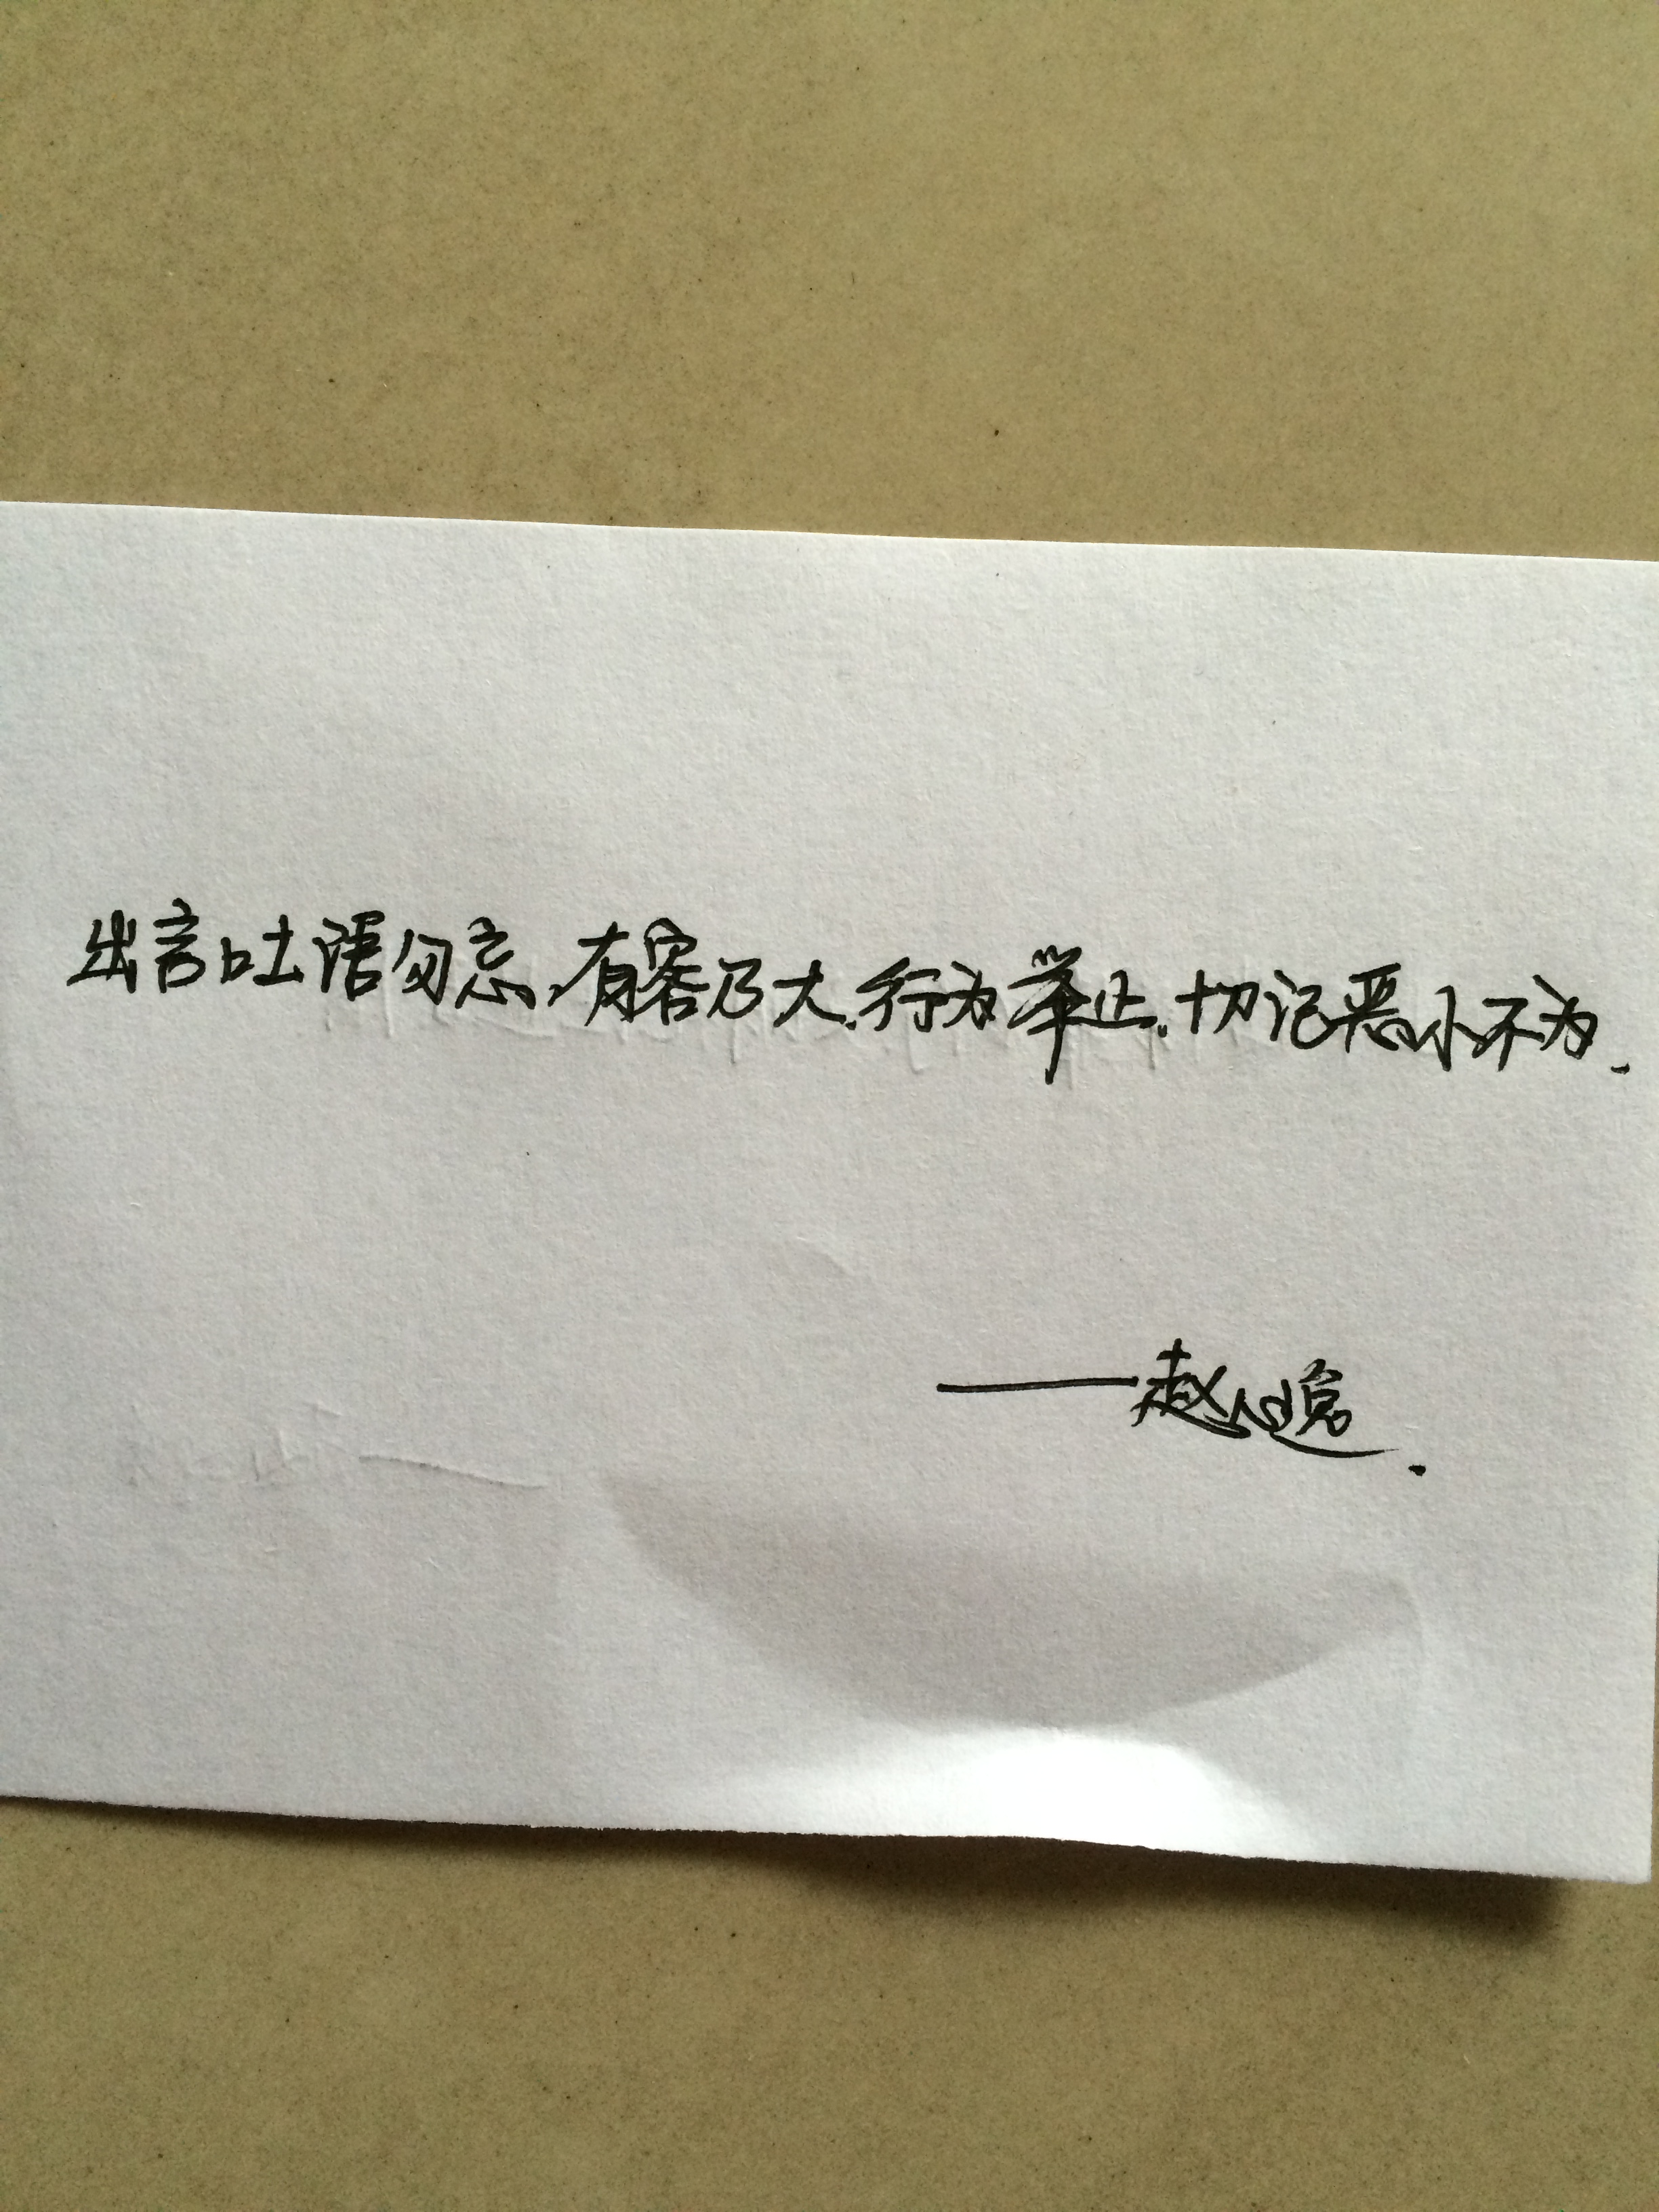 出言吐语勿忘,有容乃大.行为举止,切记恶小不为.
——赵心